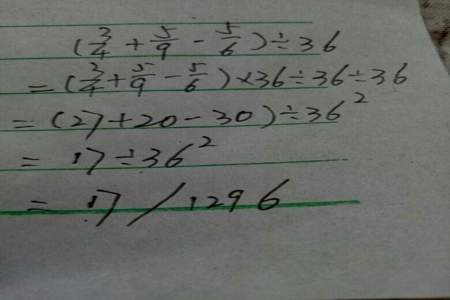 (3/4 + 5/9 - 5/6) ÷ 36
= (3/4 + 5/9 - 5/6) × 36 ÷ 36 ÷ 36
= (27 + 20 - 30) ÷ 36²
= 17 ÷ 36²
= 17 / 1296